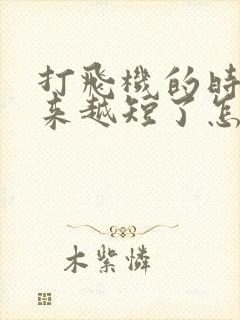 打飛機的時
来越短了怎
木紫憐